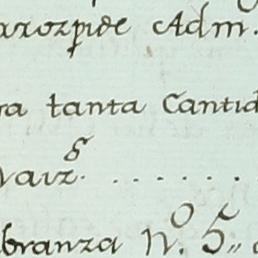 arrozpide Adm.
ra tanta Cantid
Narz.s . . . . . .
branza N.o 5,,